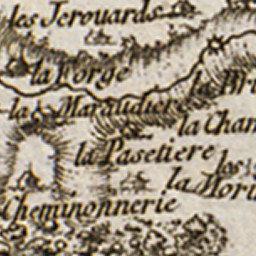 les Jerouards
la Forge
la Bri
la Maraudiere
la Cham
la Pasetiere
les
la Mori
Cheminonnerie